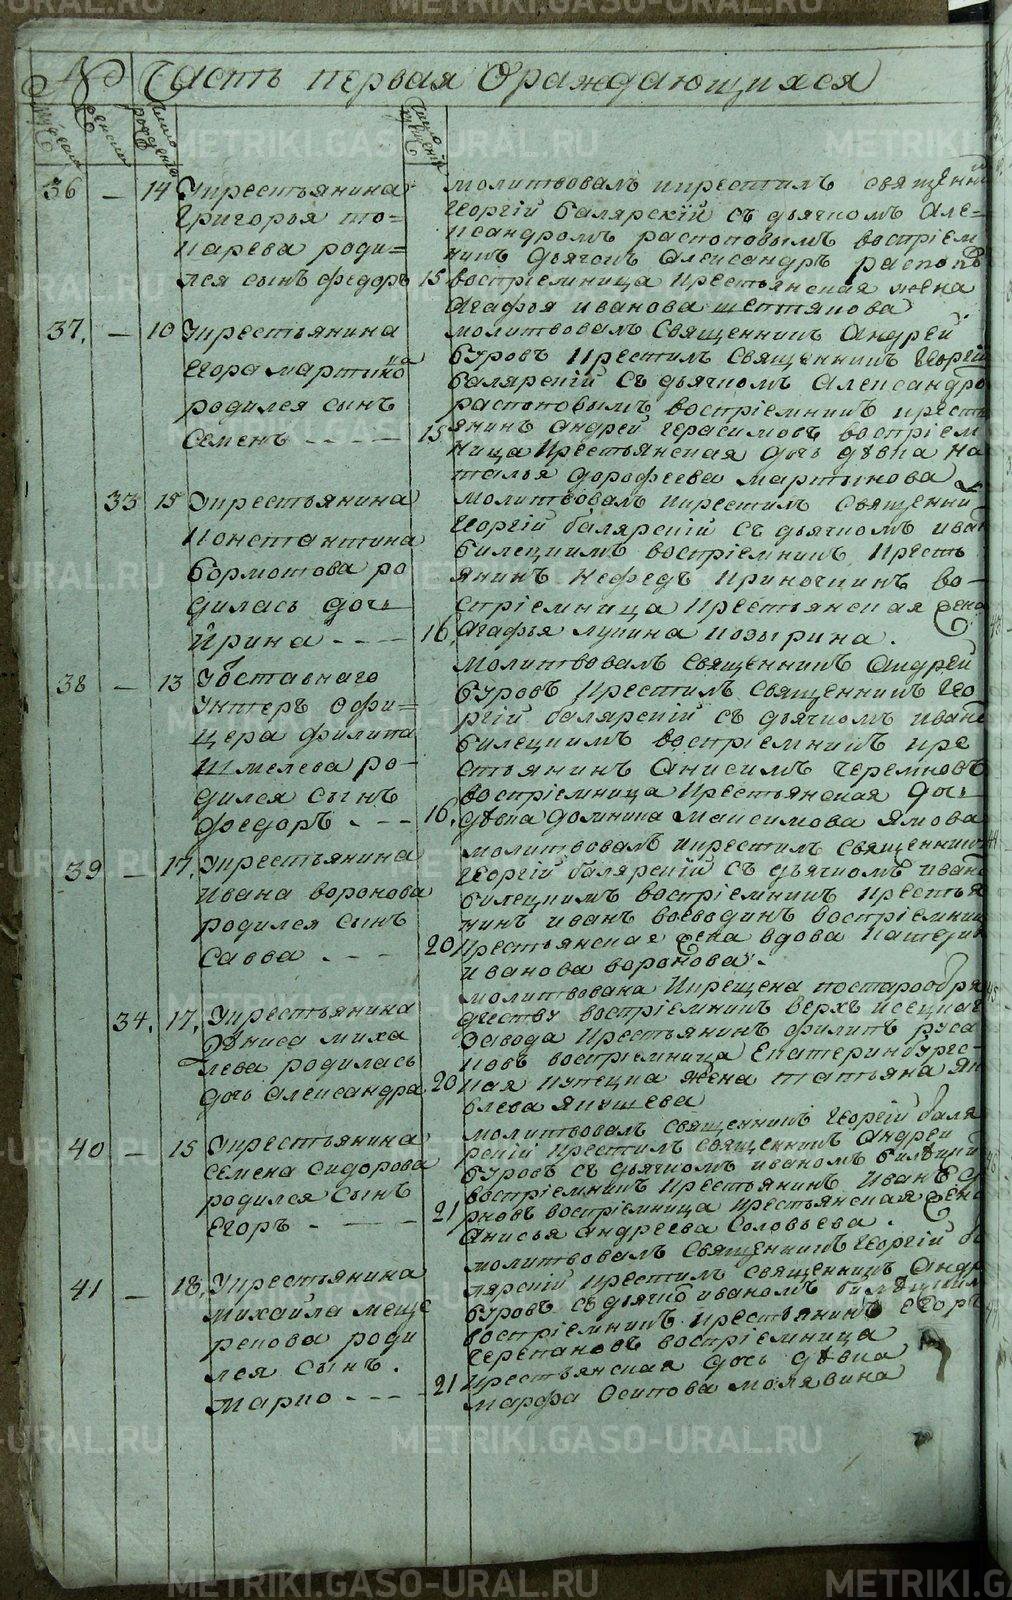 METRIKI.GASO-URAL.RU
№ Часть первая Ораждающихся
Мужеска
Женска
Число рожденія
Число крещенія
36 — 14 Укрестьянина
Григорья то=
карева роди=
лся сынъ федоръ 15
молитвовалъ икрестилъ священни
Георгій балярскій съ дьячкомъ Але=
ксандромъ распоповымъ воспріем
никъ дьячокъ Александръ распоп
воспріемница крестьянская жена
Агафья иванова
37. — 10 Укрестьянина
Егора мартино
родился сынъ
Семенъ - - - - 15
молитвовалъ Священникъ Андрей
буровъ крестилъ священникъ Георгій
балярскій съ дьячкомъ Александро
распоповымъ воспріемникъ кресть
янинъ Андрей Герасимовъ воспріем
ница крестьянская дочь дѣвка На
талья дорофеева мартынова
33 15 Укрестьянина
Константина
бормотова ро
дилась дочь
Ирина - - - 16
молитвовалъ икрестилъ Священни
Георгій балярскій съ дьячкомъ иван
билецкимъ воспріемникъ кресть
янинъ Нефедъ кривочкинъ во-
спріемница крестьянская жена
Агафья лукина козырина.
38 — 13 Уоставнаго
унтеръ офи=
цера филипа
Шмелева ро-
дился сынъ
федоръ - - - 16.
Молитвовалъ священникъ Андрей
буровъ крестилъ Священникъ Гео
ргій балярскій съ дьячкомъ ивано
билецкимъ воспріемникъ кре
стьянинъ Анисимъ Черемновъ
воспріемница крестьянская дочь
дѣвка домника максимова Ямова
39 — 17. Укрестьянина
ивана воронова
родился сынъ
Савва - - - 20
молитвовалъ икрестилъ священникъ
Георгій балярскій съ дьячкомъ ивано
билецкимъ воспріемникъ крестья
нинъ иванъ воеводинъ воспріемниц
крестьянская жена вдова катерин
иванова воронова.
34. 17. Укрестьянина
дениса миха
лева родилась
дочь Александра 20
молитвована Икрещена постарообря
дчеству воспріемникъ верхъ исецкаго
завода крестьянинъ филипъ руса
ковъ воспріемница Екатеринбургс-
кая купецка жена татьяна як
влева якушева
40 — 15 Укрестьянина
семена Сидорова
родился Сынъ
Егоръ - - - 21
молитвовалъ священникъ Георгій баля
рскій крестилъ священникъ Андрей
буровъ съ дьячкомъ иваномъ билецкі
воспріемникъ крестьянинъ Иванъ
рновъ воспріемница крестьянская жена
Анисья андреева Соловьева.
41 — 18. Укрестьянина
михаила меще
рекова роди
лся сынъ.
марко - - - 21
молитвовалъ Священникъ Георгій ба
лярскій крестилъ священникъ Андр
буровъ съ дьячко иваномъ билецким
воспріемникъ крестьянинъ егоръ
Черепановъ воспріемница
крестьянская дочь дѣвка
марфа Осипова молявина